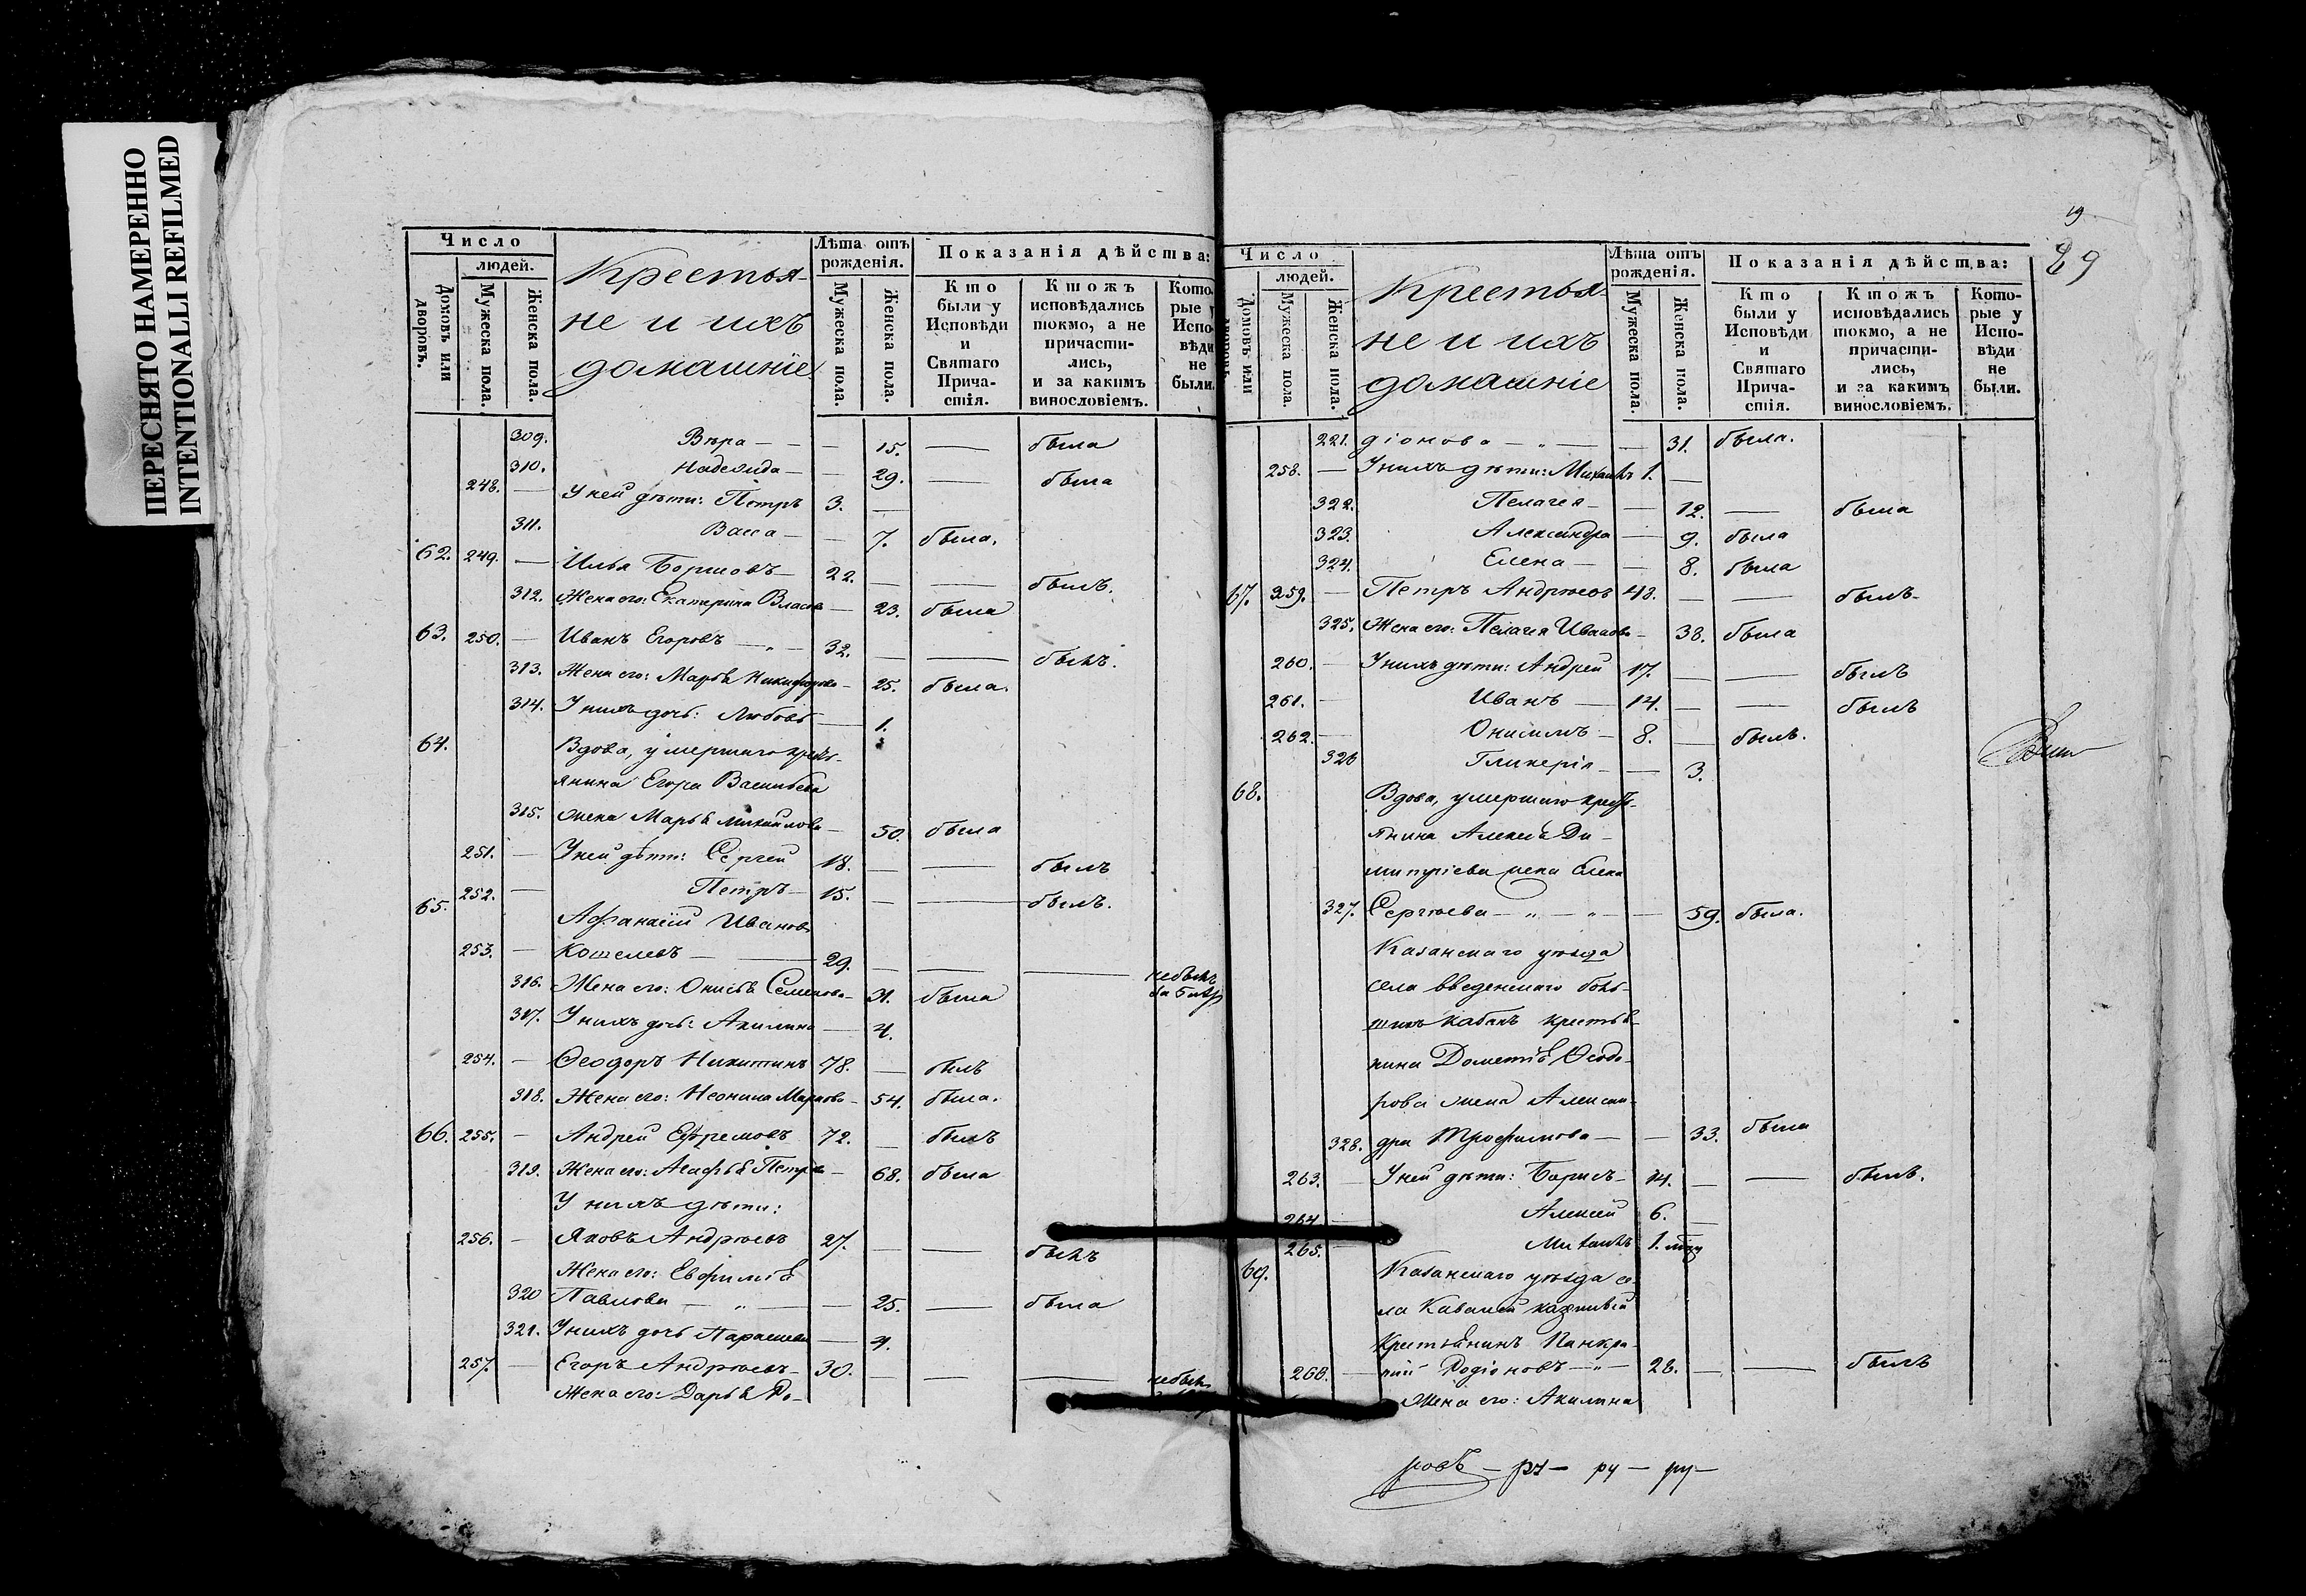 ПЕРЕСНЯТО НАМЕРЕННО
INTENTIONALLI REFILMED
Число
людей.
Домовъ или дворовъ.
Мужеска пола.
Женска пола.
Крестья-
не и ихъ
домашніе
Лѣта отъ рожденія.
Мужеска пола.
Женска пола.
Показанія дѣйства:
Кто были у Исповѣди и Святаго Прича-стія.
Ктожъ исповѣдались токмо, а не причасти-лись, и за какимъ винословіемъ.
Кото-рые у Испо-вѣди не были.
309. Вѣра — — — 15. — была
310. Надежда — — 29. — была
248. — У ней дѣти: Петръ 3. —
311. Васса — — 7. была.
62. 249. — Илья Борисовъ — 22. — — былъ.
312. Жена его: Екатерина Власова — 23. была
63. 250. — Иванъ Егоровъ — „ — 32. — — былъ.
313. Жена его: Марья Никифорова — 25. была.
314. У нихъ дочь: Любовь — 1.
64. Вдова, умершаго кресть-
янина Егора Васильева
315. жена Марья Михайлова — 50. была
251. — У ней дѣти: Сергей 18. — — былъ
252. — Петръ — 15. — — былъ.
65. Афанасій Ивановъ
253. — Кошелевъ — — 29. — — — небылъ
316. Жена его: Онисья Семенова — 31. была
317. У нихъ дочь: Акилина — 4.
254. — Ѳеодоръ Никитинъ 78. — былъ
318. Жена его: Неонила Маркова — 54. была.
66. 255. — Андрей Ефремовъ 72. — былъ
319. Жена его: Агафья Петрова — 68. была
У нихъ дѣти:
256. — Яковъ Андреевъ 27. — — былъ
Жена его: Евфимія
320 Павлова — „ — — 25. — была
321. У нихъ дочь Параскева — 4.
257. — Егоръ Андреевъ — 30. — — — небылъ
Жена его: Дарья Ро-
19
29
Число
людей.
Домовъ или дворовъ.
Мужеска пола.
Женска пола.
Крестья-
не и ихъ
домашніе
Лѣта отъ рожденія.
Мужеска пола.
Женска пола.
Показанія дѣйства:
Кто были у Исповѣди и Святаго Прича-стія.
Ктожъ исповѣдались токмо, а не причасти-лись, и за какимъ винословіемъ.
Кото-рые у Испо-вѣди не были.
221. діонова — „ — — 31. была.
258. — У нихъ дѣти: Михаилъ 1. —
322. Пелагея — — 12. — была
323. Александра — 9. была
324. Елена — — 8. была
67. 259. — Петръ Андреевъ 48. — — былъ
325. Жена его: Пелагея Иванова — 38. была
260. — У нихъ дѣти: Андрей 17. — — былъ
261. — Иванъ — 14. — — былъ
262. — Онисимъ — 8. — былъ.
326 Гликерія — — 3.
68. Вдова, умершаго кресть-
янина Алексѣя Ди-
митріева жена Елена
327. Сергеева — „ — „ — — 59. была.
Казанскаго уѣзда
села Введенскаго боль-
шихъ Кабанъ крестья-
нина Дометія Ѳеодо-
рова жена Алексан-
328. дра Трофимова — — 33. была
263. — У ней дѣти: Борисъ — 14. — — былъ.
264 — Алексей 6. —
265. — Михаилъ 1.
69. Казанскаго уѣзда се-
ла
Крестьянинъ Панкра-
266. — тій Родіоновъ — „ — 28. — — былъ
Жена его: Акилина